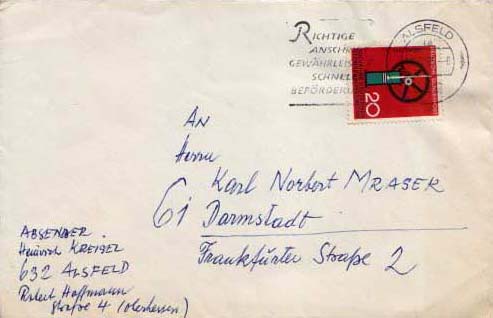 RICHTIGE
ANSCHRIFT
GEWÄHRLEISTET
SCHNELLE
BEFÖRDERUNG
ALSFELD
20
AN
Herrn
Karl Norbert MRASEK
61 Darmstadt
Frankfurter Straße 2
ABSENDER
Heinrich KREISEL
632 ALSFELD
Robert Hoffmann
Straße 4 (Oberhessen)